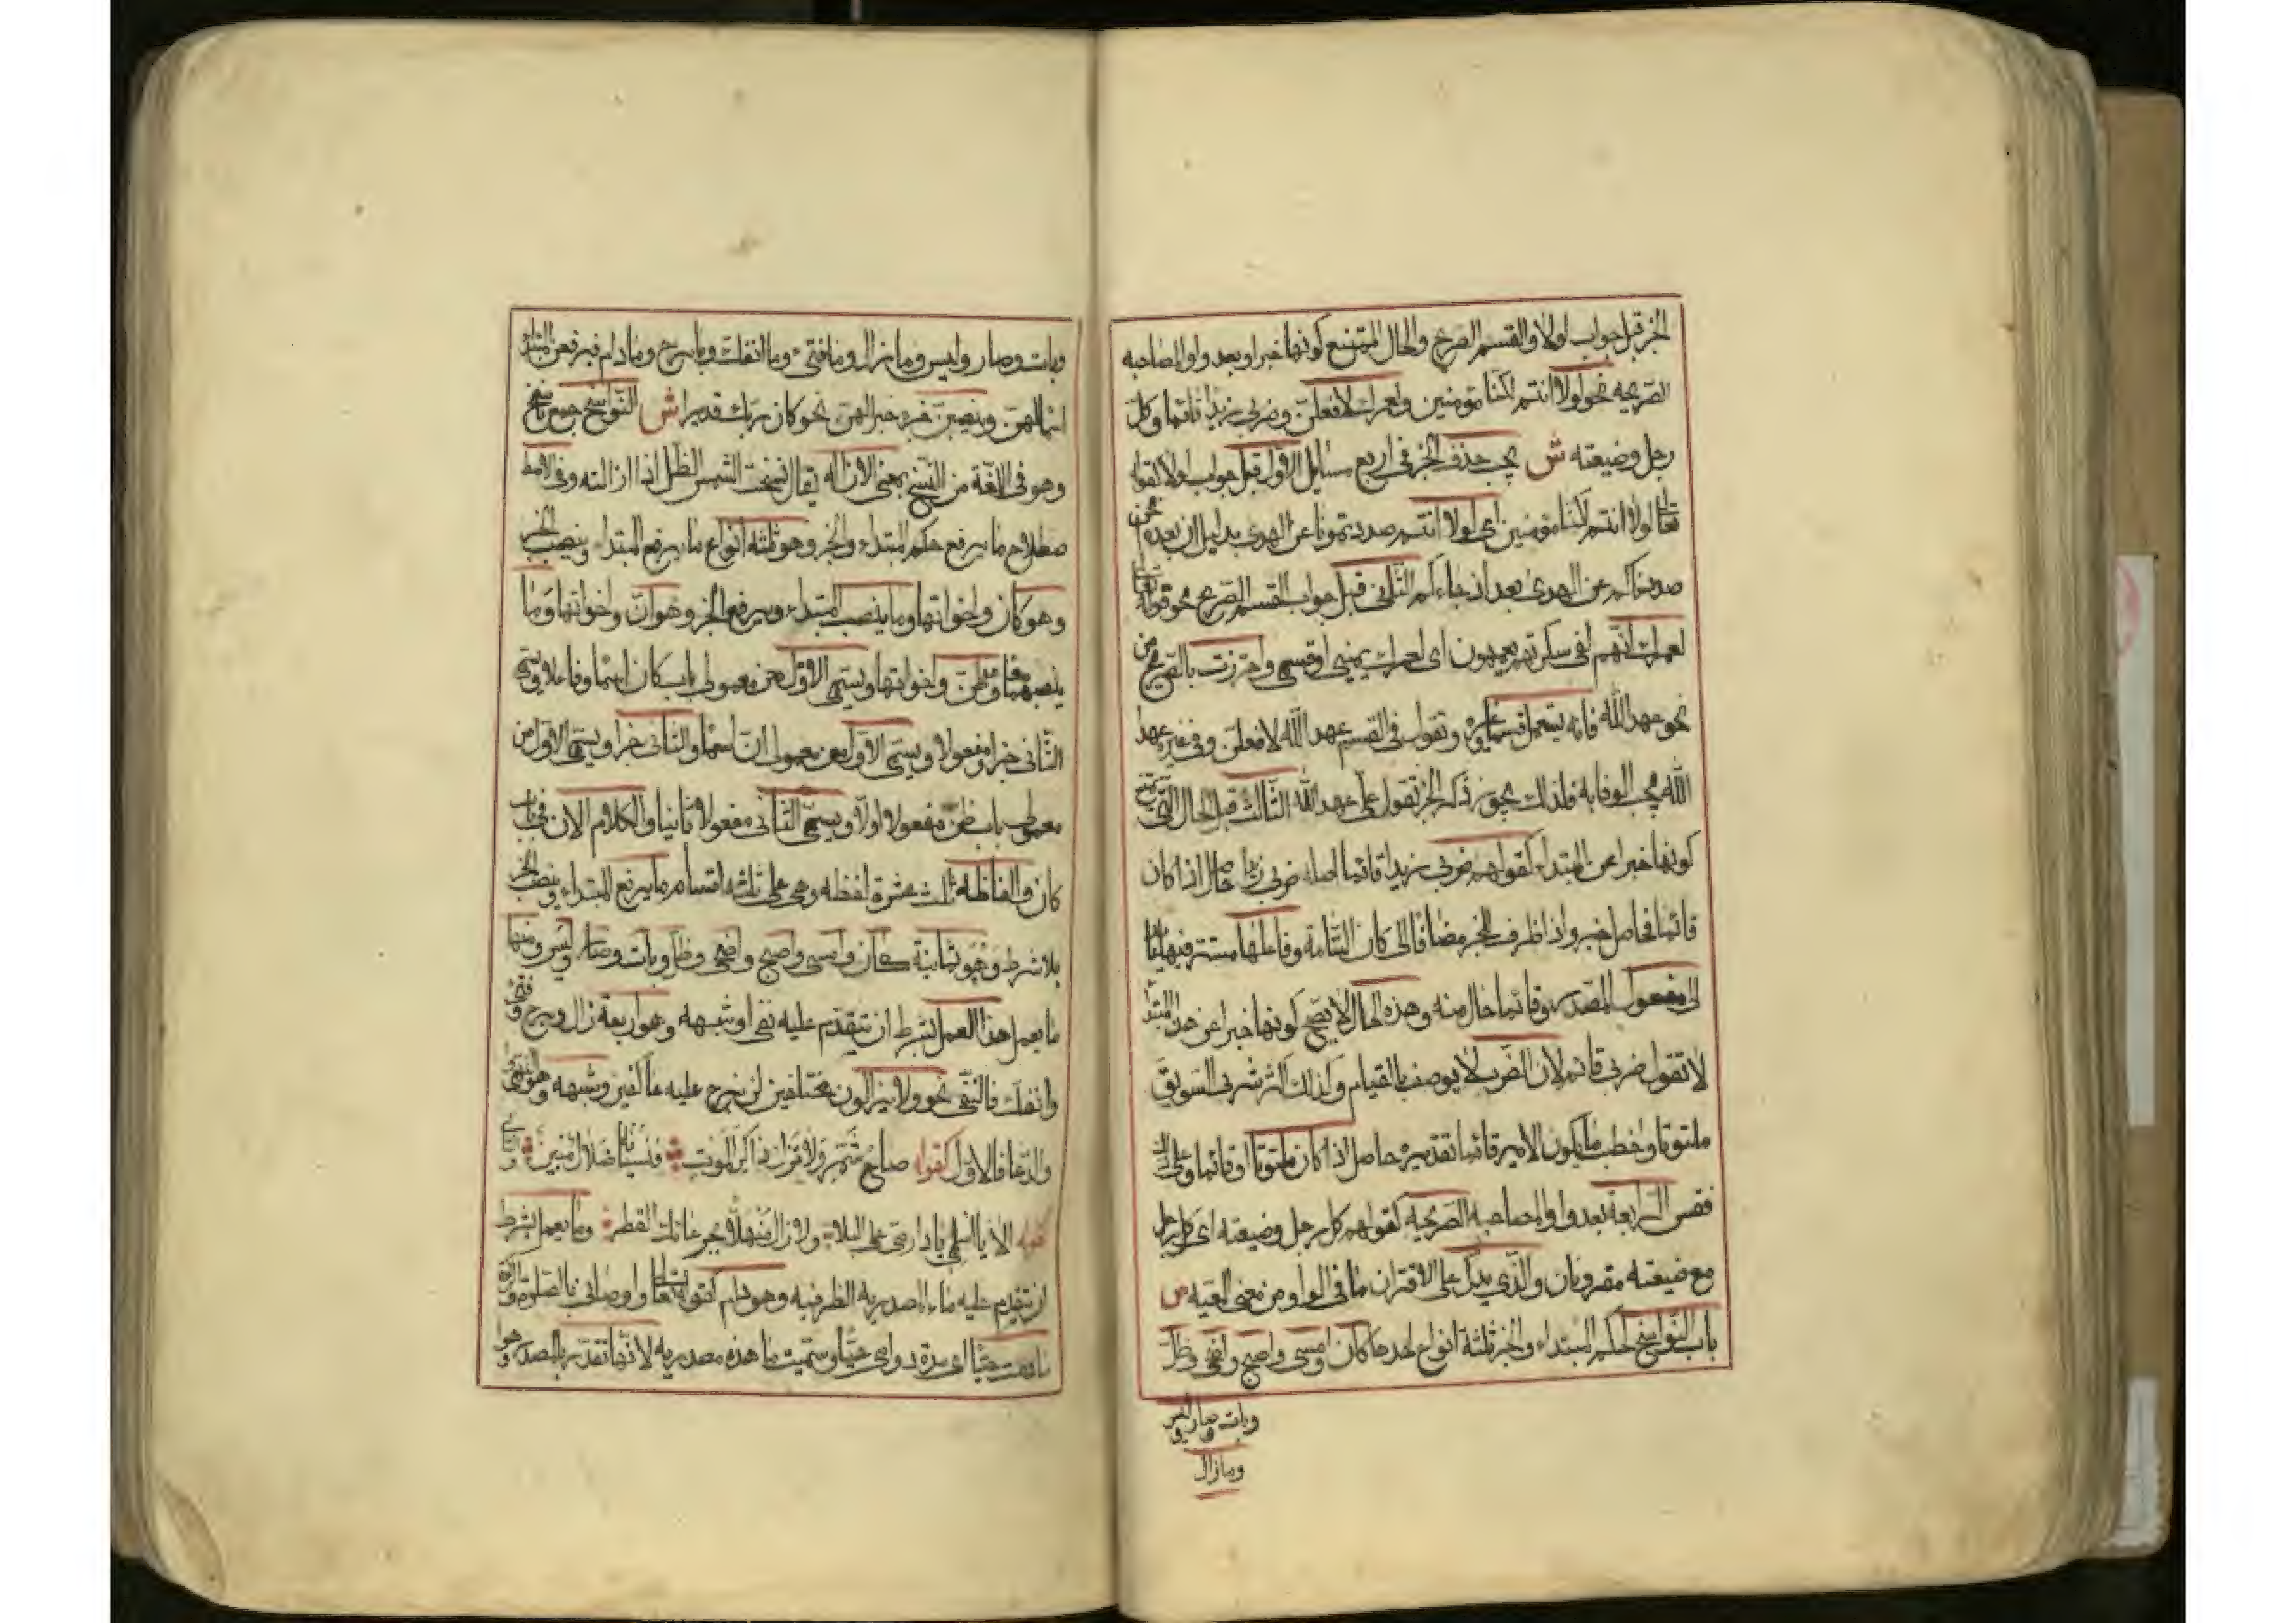 الخبر قبل جواب لولا والقسم الصريح والحال الممتنع كونها خبرا وبعد واو المصاحبه
الصريحه نحو لولا انتم لكنا مؤمنين ولعمرك لافعلن وضربي زيدا قائما وكل
رجل وضيعته ش يجب حذف الخبر في اربع مسايل الاول قبل جواب لولا كقوله
تعالى لولا انتم لكنا مؤمنين اى لولا انتم صددتمونا عن الهدى بدليل ان بعده انحن
صددناكم عن الهدى بعد اذ جاءكم الثاني قبل جواب القسم الصريح نحو قوله تعالى
لعمرك انهم لفى سكرتهم يعمهون اى لعمرك يمينى او قسمى واحترزت بالصريح من
نحو عهد الله فانه يستعمل قسما وغيره وتقول في القسم عهد الله لافعلن وفي غيره عهد
الله يجب الوفا به فلذلك يجوز ذكر الخبر تقول على عهد الله الثالث قبل الحال التى يمتنع
كونها خبرا عن المبتداء كقولهم ضربي زيدا قائما اصله ضربي زيدا حاصل اذا كان
قائما فحاصل خبر واذا ظرف للخبر مضافا الى كان التامة وفاعلها مستتر فيها عائد
الى مفعول المصدر وقائما حال منه وهذه الحال لا يصح كونها خبرا عن هذا المبتدا
لا تقول ضربي قائم لان الضرب لا يوصف بالقيام وكذلك اكثر شربى السويق
ملتوتا واخطب ما يكون الامير قائما تقديره حاصل اذا كان ملتوتا او قائما وعلى ذلك
فقس الرابعة بعد واو المصاحبه الصريحه كقولهم كل رجل وضيعته اى كل رجل
مع ضيعته مقرونان والذي يدل على الاقتران ما في الواو من معنى المعيه ص
باب النواسخ لحكم المبتداء والخبر ثلثة انواع احدها كان وامسى واصبح واضحى وظل
وبات وصار وليس
ومازال
وبات وصار وليس وما زال وما فتىء وما انفك وما برح وما دام فيرفعن المبتدا
اسما لهن وينصبن خبره خبرا لهن نحو كان ربك قديرا ش النواسخ جمع ناسخ
وهو في اللغة من النسخ بمعنى الازاله يقال نسخت الشمس الظل اذا ازالته وفي الاصط
صطلاح ما يرفع حكم المبتداء والخبر وهو ثلثه انواع ما يرفع المبتداء وينصب الخبر
وهو كان واخواتها وما ينصب المبتداء ويرفع الخبر وهو ان واخواتها وما
ينصبهما معا وهو ظن واخواتها ويسمى الاول من معمولى باب كان اسما وفاعلا ويسمى
الثانى خبرا ومفعولا ويسمى الاول من معمولى ان اسما والثانى خبرا ويسمى الاول من
معمولى باب ظن مفعولا اولا ويسمى الثانى مفعولا ثانيا والكلام الان في باب
كان والفاظه ثلث عشرة لفظه وهى على ثلثه اقسام ما يرفع المبتداء وينصب الخبر
بلا شرط وهو ثمانية كان وامسى واصبح واضحى وظل وبات وصار وليس ومنها
ما يعمل هذا العمل بشرط ان يتقدم عليه نفى او شبهه وهو اربعة زال وبرح وفتىء
وانفك فالنفى نحو ولا يزالون مختلفين لن نبرح عليه عاكفين وشبهه وهو النهى
والدعا فالاول كقوله صاح شمر ولا تزال ذاكر الموت فنسيانه ضلال مبين والثانى
كقوله الا يا اسلمى يا دار مى على البلا ولا زال منهلا بجرعائك القطر وما يعمل بشرط
ان يتقدم عليه ما المصدريه الظرفيه وهو دام كقوله تعالى واوصانى بالصلوة والزكوة
ما دمت حيا اى مدة دوامى حيا وسميت ما هذه مصدريه لانها تقدر بالمصدر وهو